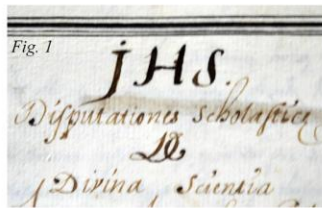 Fig. 1
JHS.
Disputationes scholasticę
De
Divina Scientia